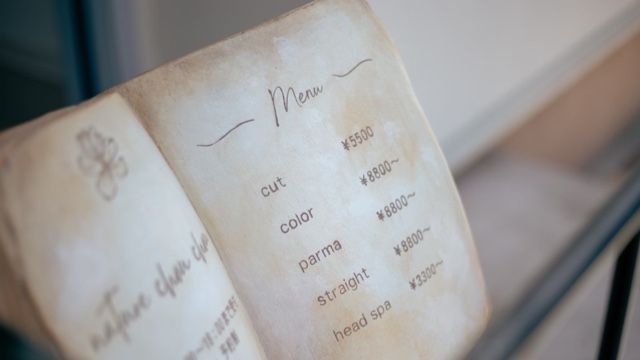 nature chou chou
Menu
cut ¥5500
color ¥8800~
parma ¥8800~
straight ¥8800~
head spa ¥3300~